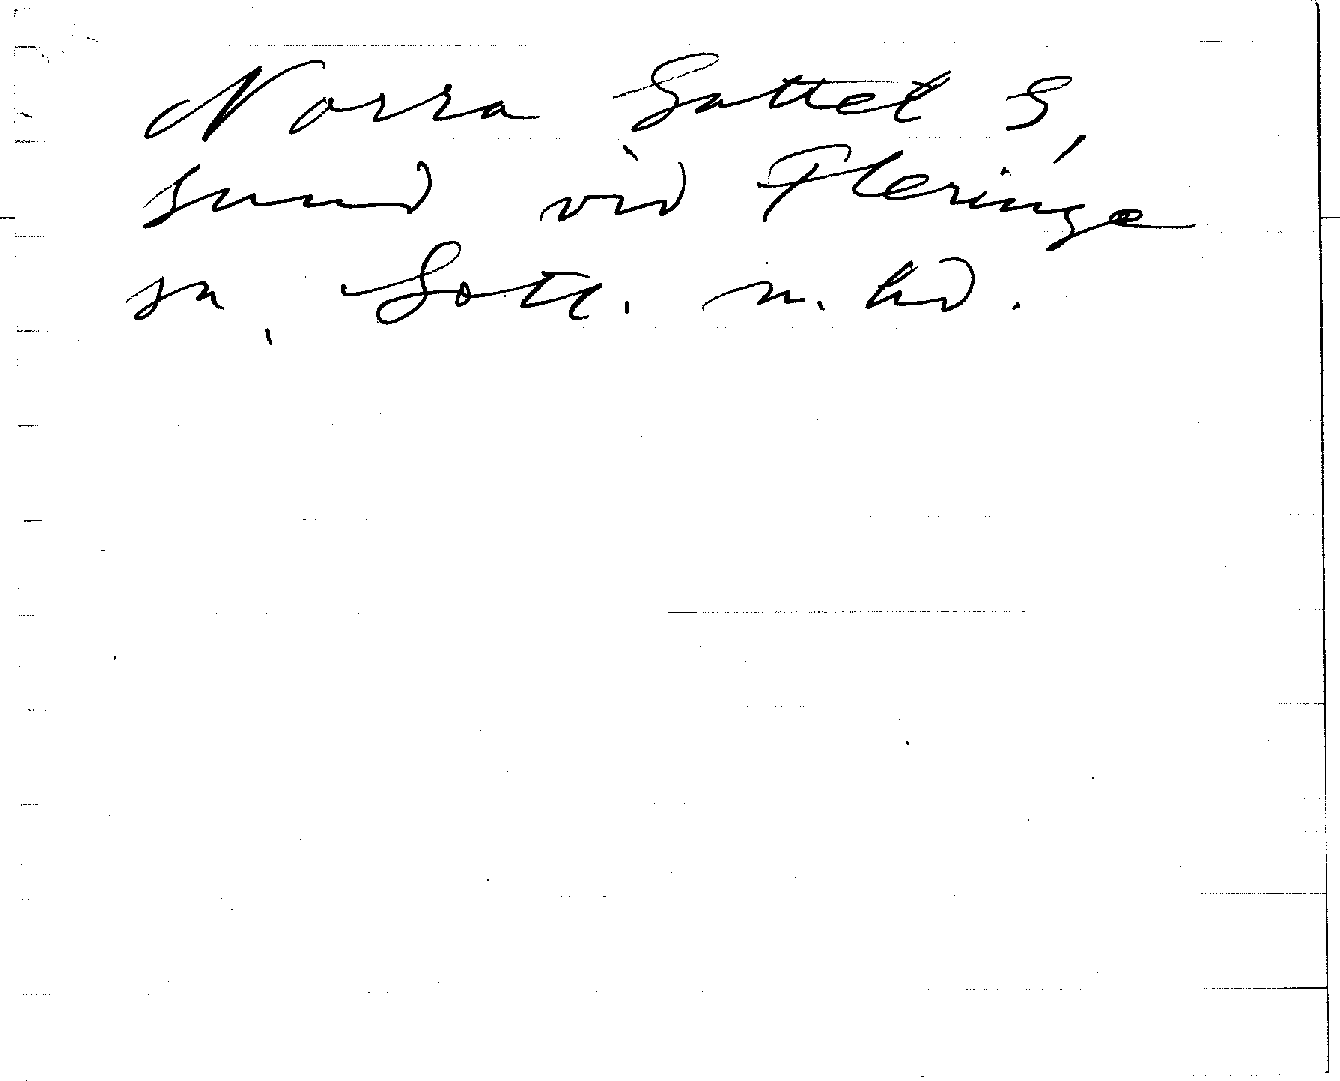 Norra Gattet S,
sund vid Fleringe
sn, Gotl. n. hd.